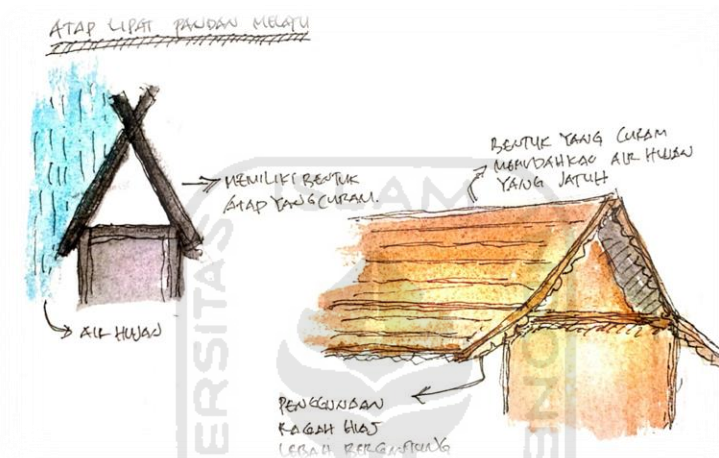 ATAP LIPAT PANDAN MELAYU
MEMILIKI BENTUK
ATAP YANG CURAM.
AIR HUJAN
BENTUK YANG CURAM
MEMUDAHKAN AIR HUJAN
YANG JATUH
PENGGUNAAN
RAGAM HIAS
LEBAH BERGANTUNG
ISLAM
ERSITAS